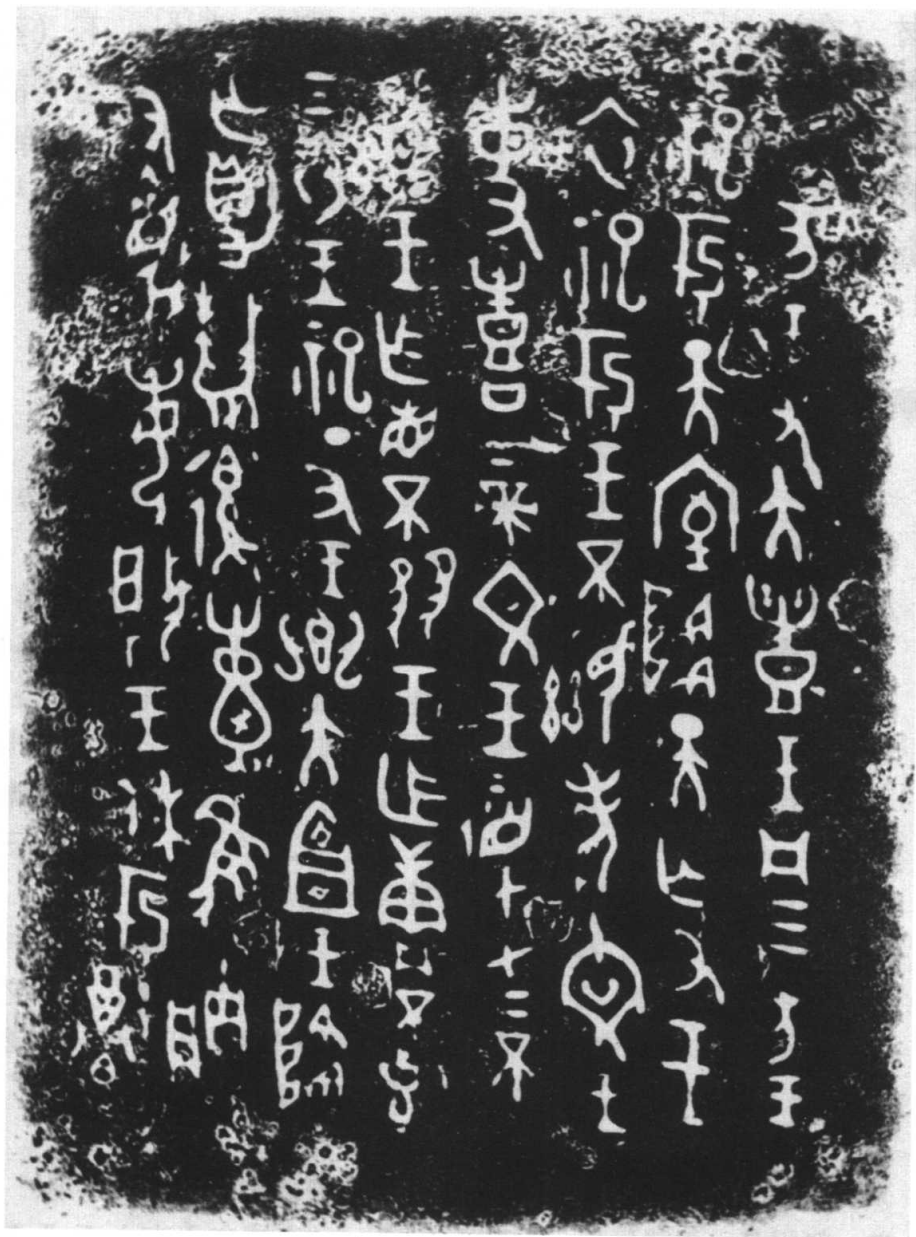 亥王又大豊王凡三方王
祀于天室降天亡又王
衣祀于王不顯考文王
事喜上帝文王監在上不
顯王乍眚不王乍庚不克
气衣王祀丁丑王鄉大宜王降
亡爵退囊隹朕
又每揚王休于